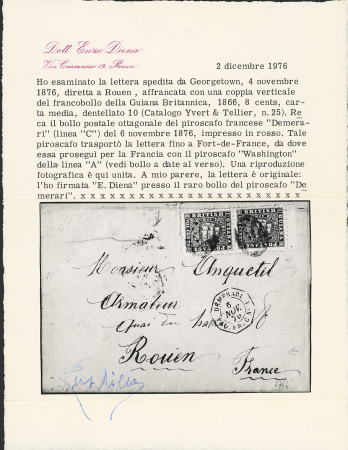 Dott. Enzo Diena
Via Crescenzio 19. Roma
2 dicembre 1976
Ho esaminato la lettera spedita da Georgetown, 4 novembre
1876, diretta a Rouen , affrancata con una coppia verticale
del francobollo della Guiana Britannica, 1866, 8 cents, car-
ta media, dentellato 10 (Catalogo Yvert & Tellier, n. 25). Re
ca il bollo postale ottagonale del piroscafo francese "Demera-
rari" (linea "C") del 6 novembre 1876, impresso in rosso. Tale
piroscafo trasportò la lettera fino a Fort-de-France, da dove
essa proseguì per la Francia con il piroscafo "Washington"
della linea "A" (vedi bollo a date al verso). Una riproduzione
fotografica è qui unita. A mio parere, la lettera è originale:
l'ho firmata "E. Diena" presso il raro bollo del piroscafo "De
merari". x x x x x x x x x x x x x x x x x x x x x
BRITISH BRITISH
Monsieur Anquetil
Armateur
quai du
DEMERARI
6
NOV
76
8
Rouen
France
Enzo Diena